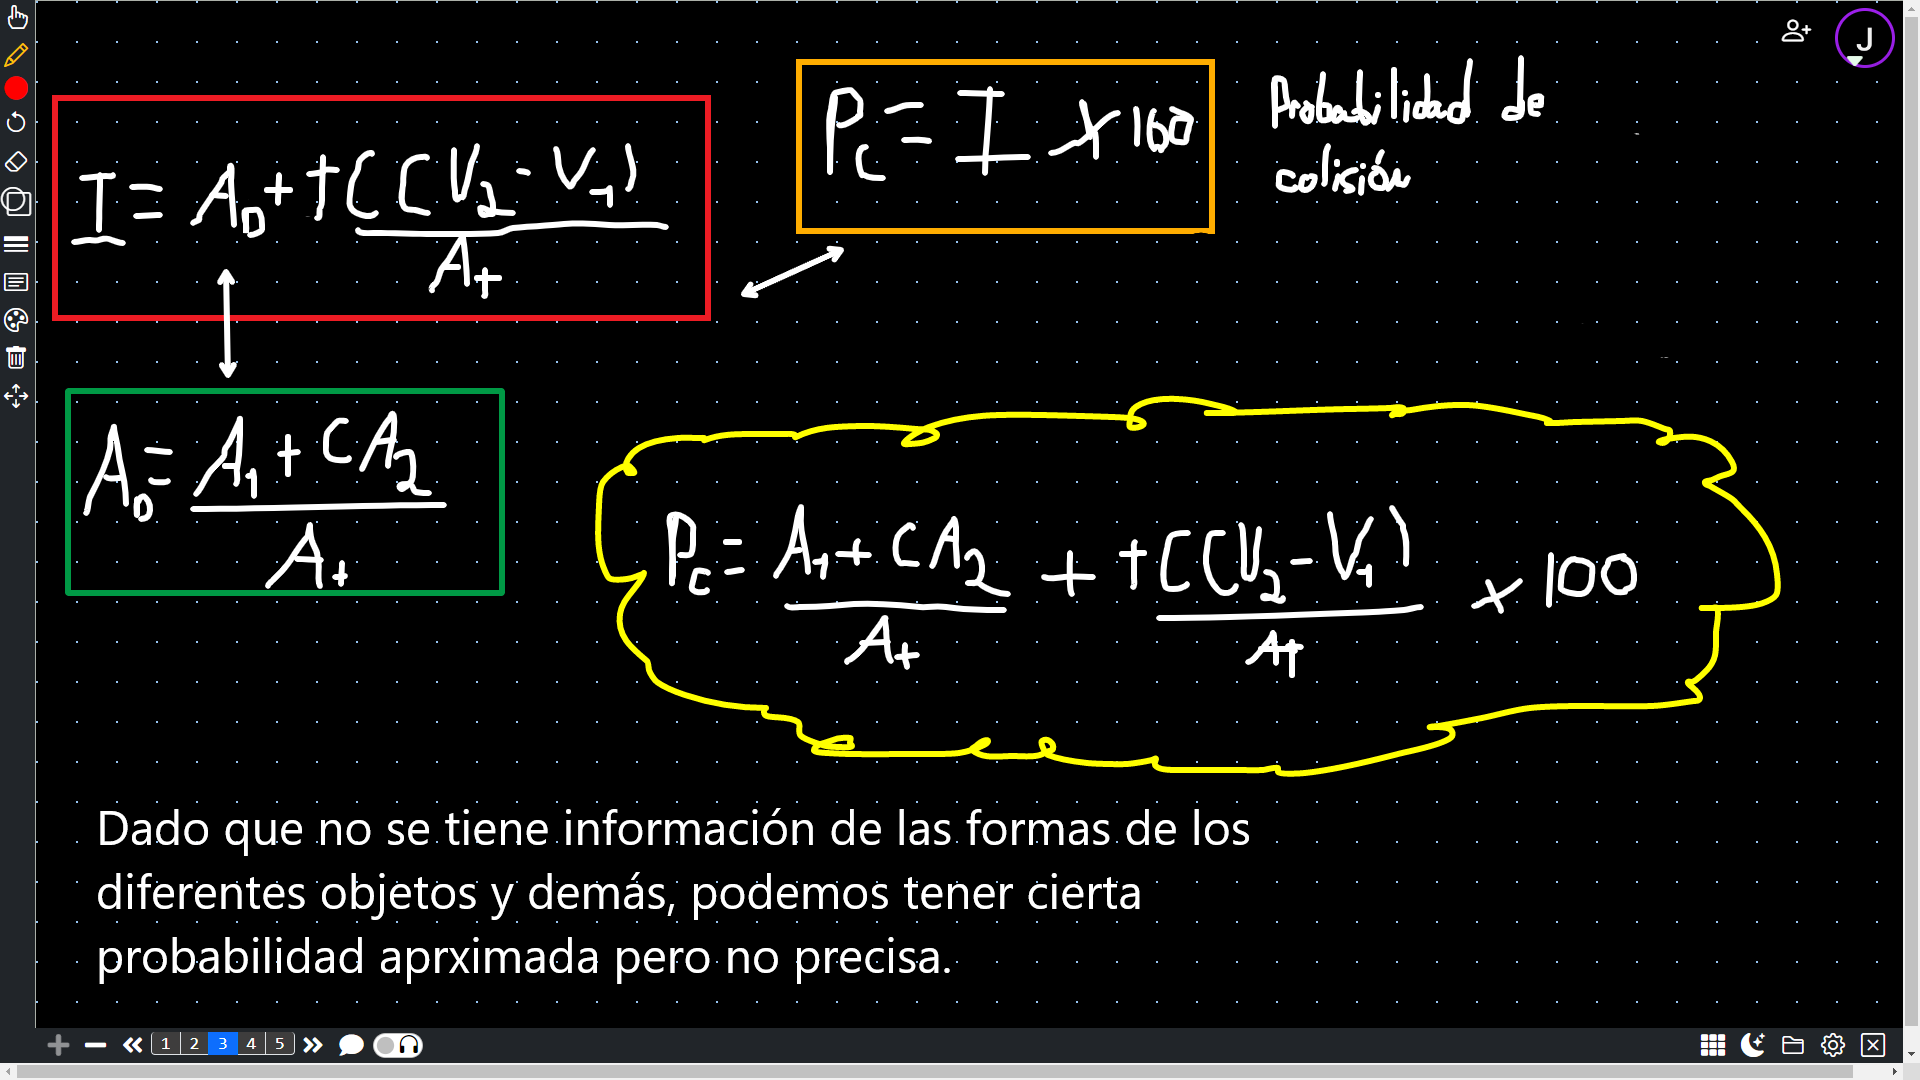 J
I = A₀ + t(CV₂ - V₁)
A₊
P꜀ = I x 100
Probabilidad de
colisión
A₀ = A₁ + CA₂
A₊
P꜀ = A₁ + CA₂ + t(CV₂ - V₁) x 100
A₊ A₊
Dado que no se tiene información de las formas de los
diferentes objetos y demás, podemos tener cierta
probabilidad aprximada pero no precisa.
1 2 3 4 5